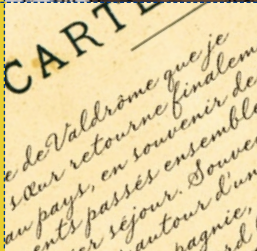 CARTE
e de Valdrôme que je
sœur retourne finalem
au pays, en souvenir de
ents passés ensemble
er séjour. Souve
autour d'un
pagnie,